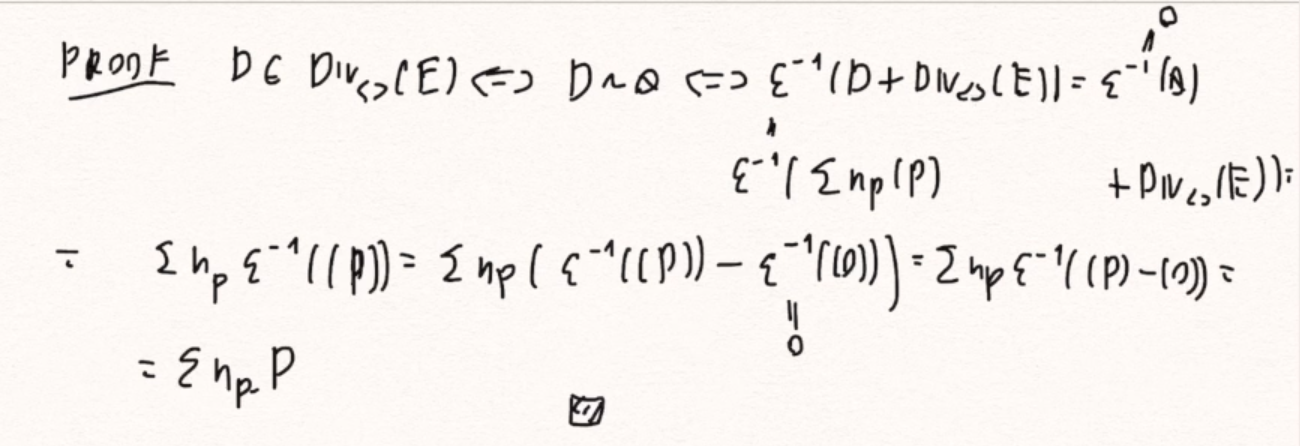 PROOF D ∈ Div<>(E) <=> D ~ 0 <=> ε⁻¹(D + Div<>(E)) = ε⁻¹(0) = 0
= ε⁻¹(Σ n_p (P) + Div<>(E)) =
= Σ n_p ε⁻¹((P)) = Σ n_p (ε⁻¹((P)) - ε⁻¹((0))) = Σ n_p ε⁻¹((P)-(0)) =
= 0
= Σ n_p P